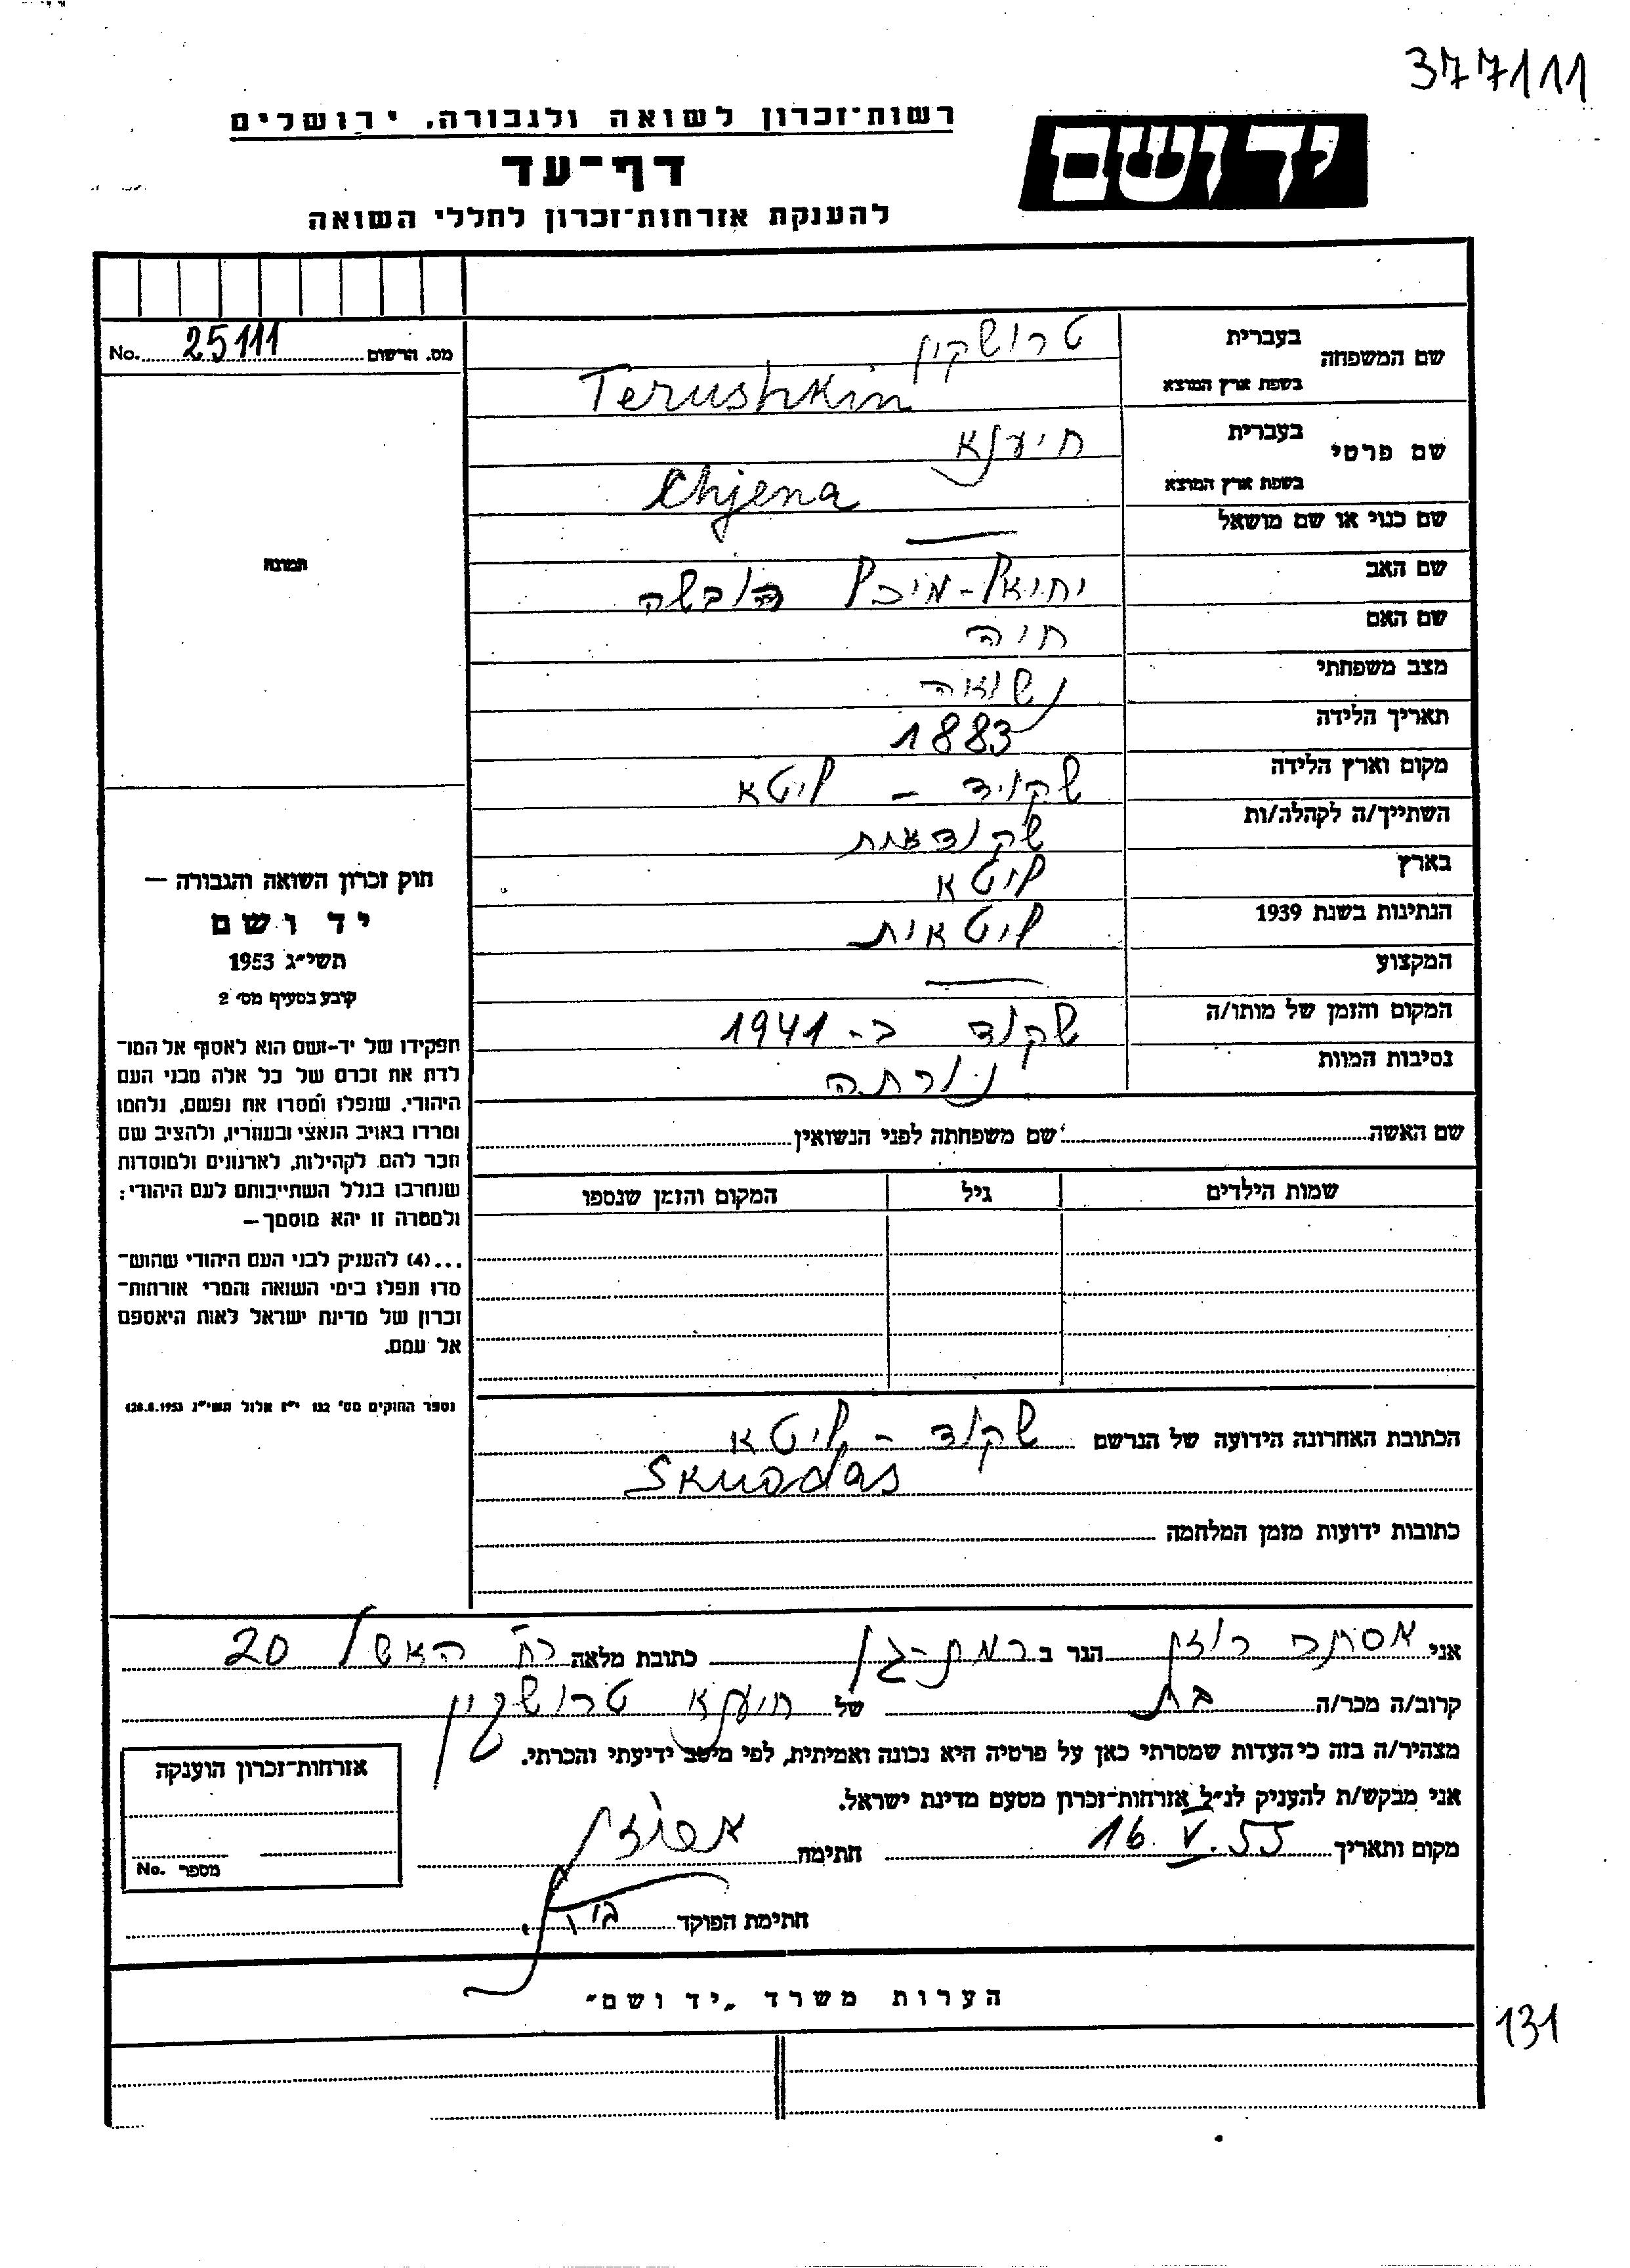 377111
רשות־זכרון לשואה ולגבורה, ירושלים
יד ושם
דף־עד
להענקת אזרחות־זכרון לחללי השואה
מס. הרשום 25111 No.
שם המשפחה בעברית טרושקין
בשפת ארץ המוצא Terushkin
שם פרטי בעברית חיענא
בשפת ארץ המוצא Chjena
שם כנוי או שם מושאל —
שם האב יחיאל-מיכל
שם האם חיה
מצב משפחתי נשואה
תאריך הלידה 1883
מקום וארץ הלידה שקויד - ליטא
השתייך/ה לקהלה/ות
בארץ ליטא
הנתינות בשנת 1939 ליטאית
המקצוע —
המקום והזמן של מותו/ה שקוד ב- 1941
נסיבות המוות נורתה
תמונה
חוק זכרון השואה והגבורה —
יד ושם
תשי״ג 1953
קובע בסעיף מס׳ 2
תפקידו של יד-ושם הוא לאסוף אל המו־
לדת את זכרם של כל אלה מבני העם
היהודי, שנפלו ומסרו את נפשם, נלחמו
ומרדו באויב הנאצי ובעוזריו, ולהציב שם
וזכר להם לקהילות, לארגונים ולמוסדות
שנחרבו בגלל השתייכותם לעם היהודי;
ולמטרה זו יהא מוסמך—
...(4) להעניק לבני העם היהודי שהוש־
מדו ונפלו בימי השואה והמרי אזרחות־
זכרון של מדינת ישראל לאות היאספם
אל עמם.
(ספר החוקים מס׳ 132 י״ז אלול תשי״ג 28.8.1953)
שם האשה שם משפחתה לפני הנשואין
שמות הילדים גיל המקום והזמן שנספו
הכתובת האחרונה הידועה של הנרשם שקוד - ליטא
Skuodas
כתובות ידועות מזמן המלחמה
אני אסתר רוזן הגר ב רמת-גן כתובת מלאה רח׳ האשל 20
קרוב/ה מכר/ה בת של חיענא טרושקין
מצהיר/ה בזה כי העדות שמסרתי כאן על פרטיה היא נכונה ואמיתית, לפי מיטב ידיעתי והכרתי.
אני מבקש/ת להעניק לנ״ל אזרחות־זכרון מטעם מדינת ישראל.
מקום ותאריך 16.V.55 חתימה
חתימת הפוקד
אזרחות־זכרון הוענקה
מספר No.
הערות משרד „יד ושם״
131